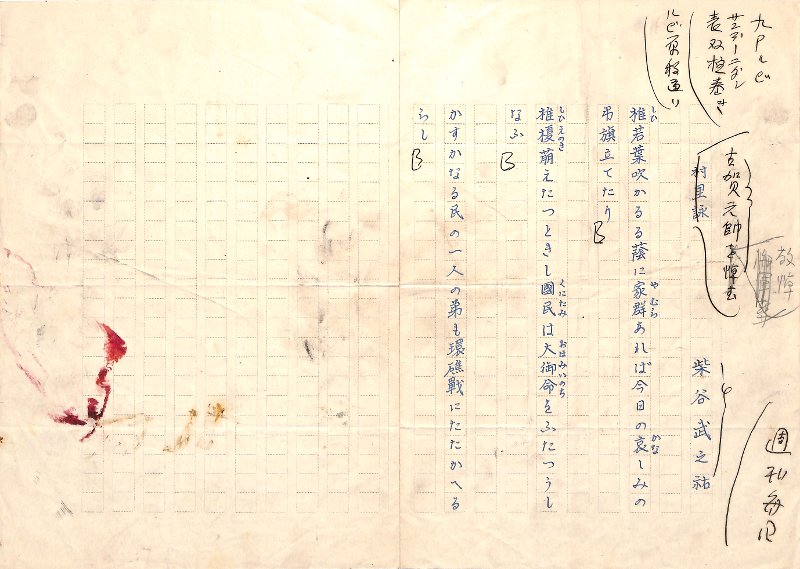 九ポルビ
表双柱巻き
ルビ原稿通り
週刊毎日
古賀元帥
村里詠
柴谷武之祐
椎若葉吹かるる蔭に家群あれば今日の哀しみの
弔旗立てたり
B
椎榎萌えたつときし國民は大御命をふたつうし
なふ
B
かすかなる民の一人の弟も環礁戰にたたかへる
らし
B